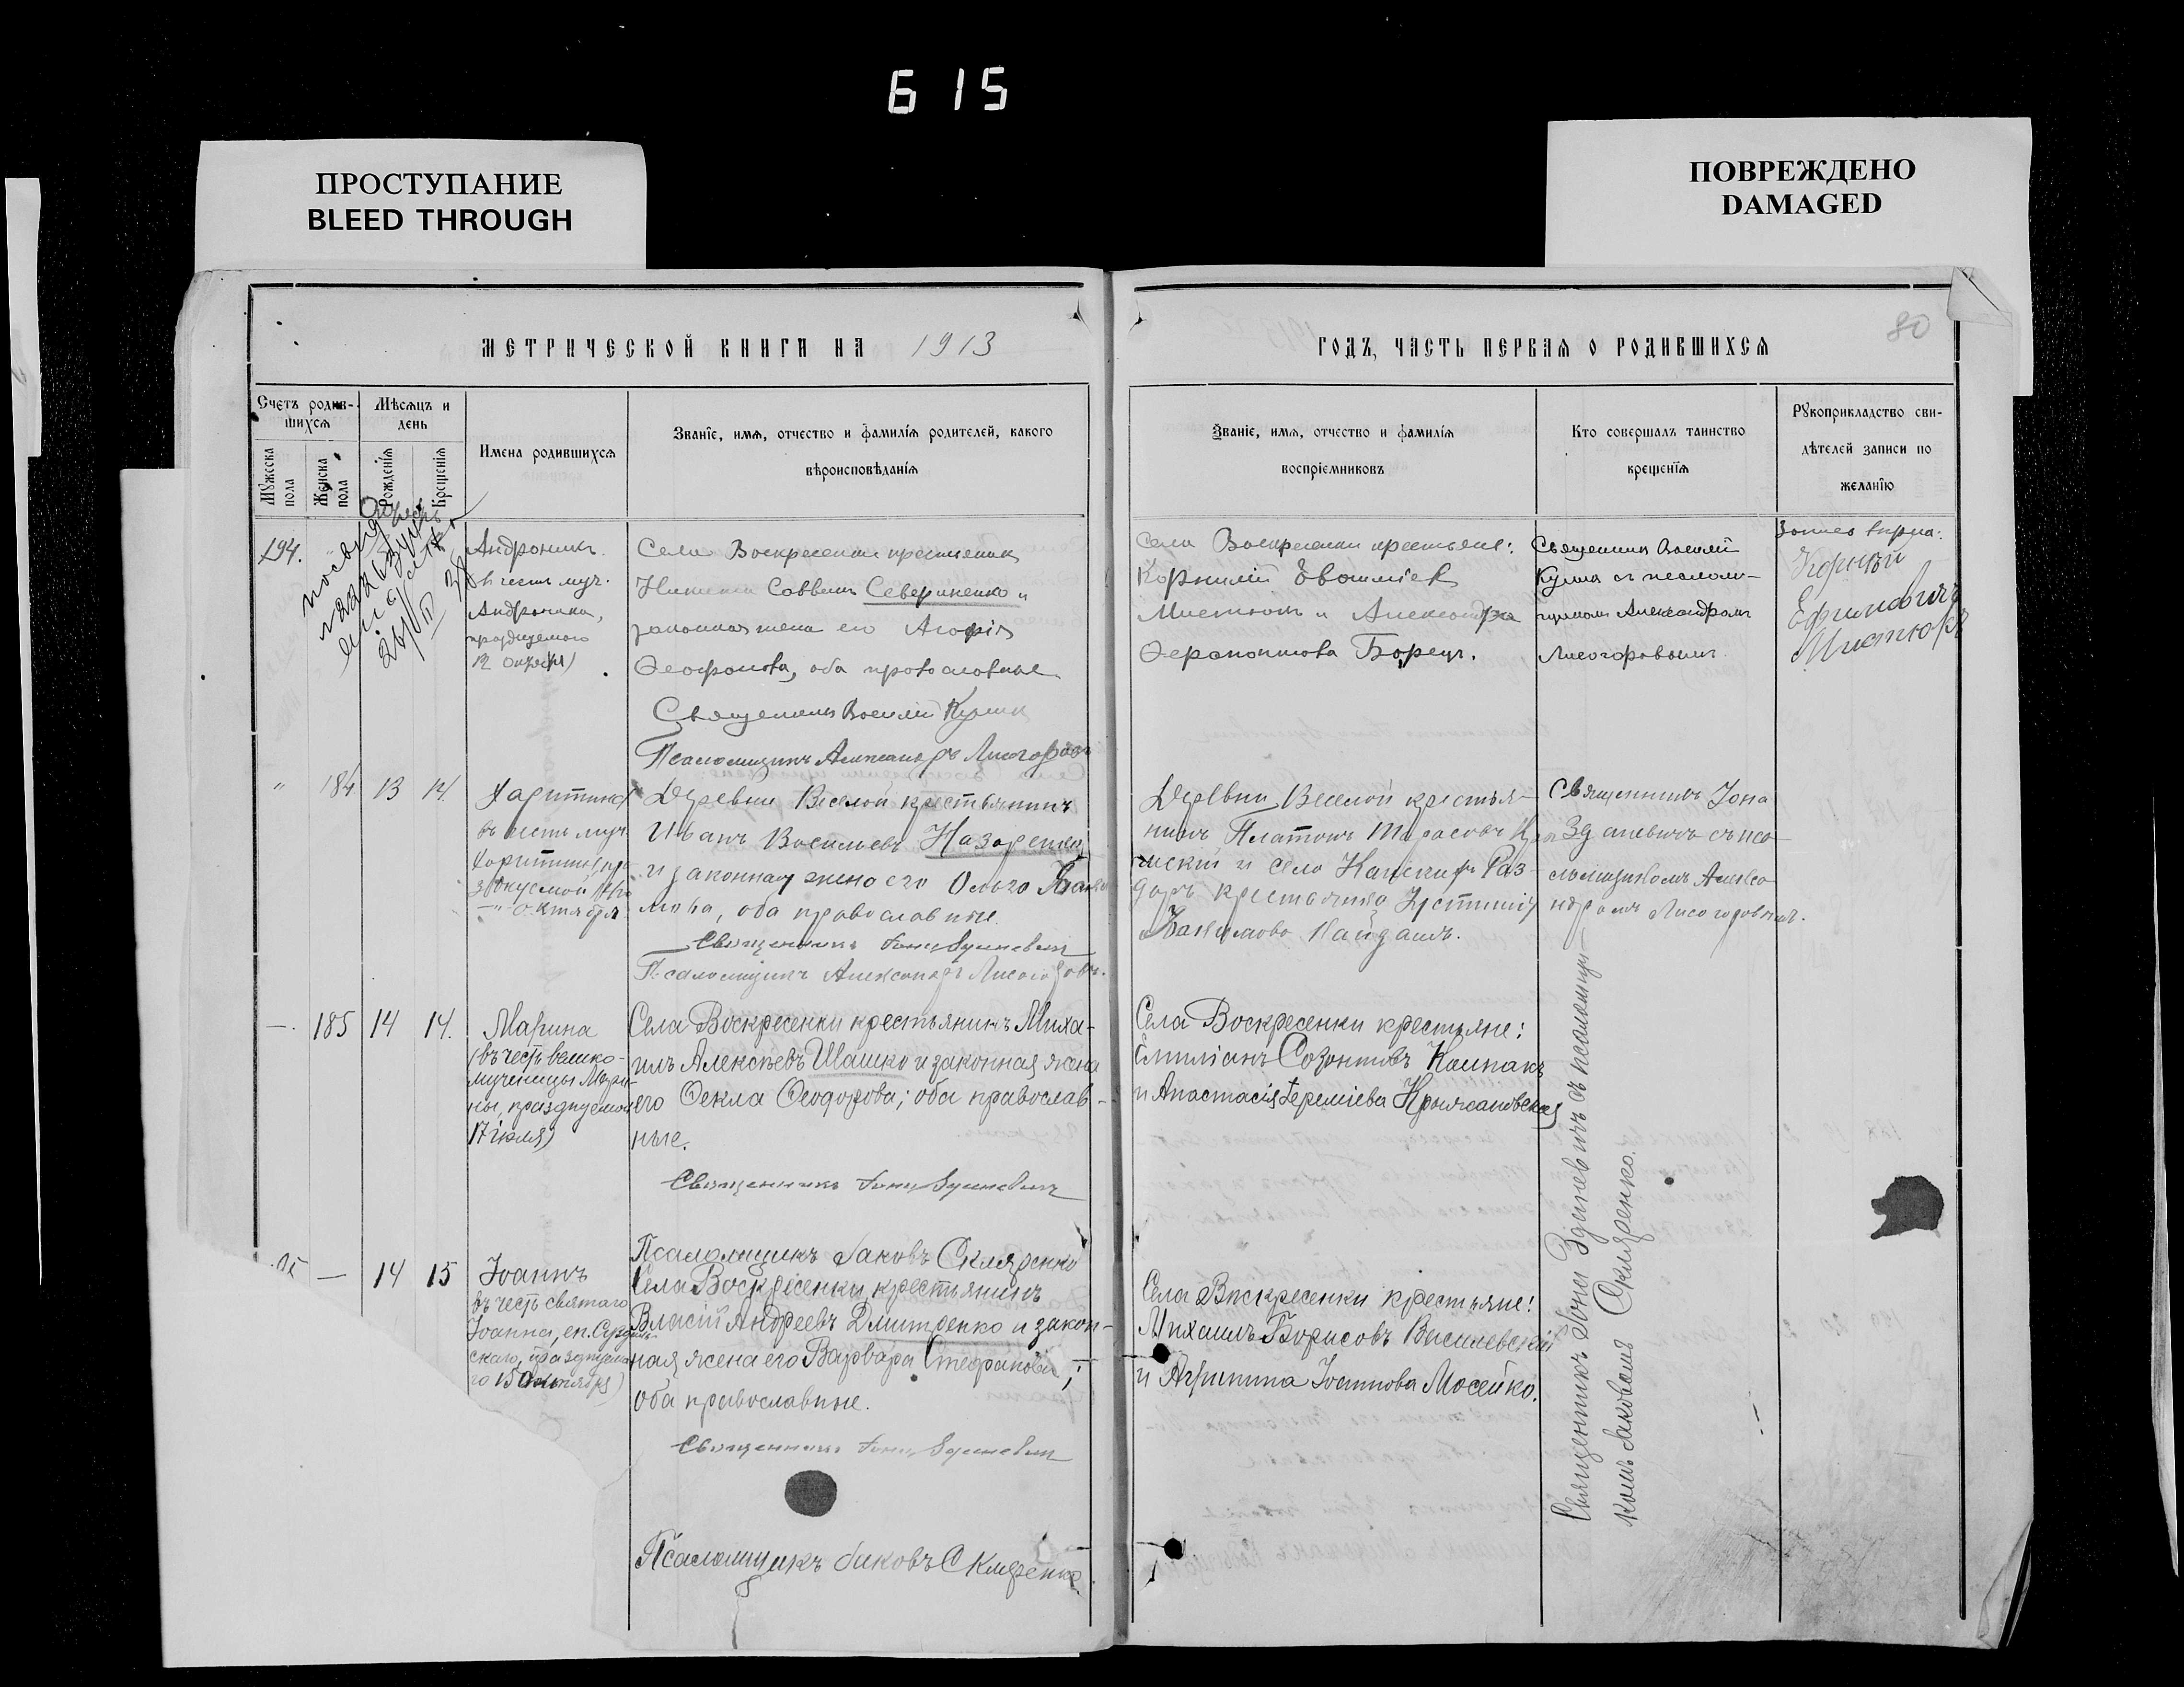 615
ПРОСТУПАНИЕ
BLEED THROUGH
ПОВРЕЖДЕНО
DAMAGED
МЕТРИЧЕСКОЙ КНИГИ НА 1913
ГОДЪ, ЧАСТЬ ПЕРВАЯ О РОДИВШИХСЯ
80
Счетъ родив-
шихся
Мѣсяцъ и
день
Мужеска
пола
Женска
пола
Рожденія
Крещенія
Имена родившихся
Званіе, имя, отчество и фамилія родителей, какого
вѣроисповѣданія
Званіе, имя, отчество и фамилія
воспріемниковъ
Кто совершалъ таинство
крещенія
Рукоприкладство сви-
дѣтелей записи по
желанію
194.
Андроникъ
въ честь муч.
Андроника,
празднуемаго
12 Октября)
Села Воскресенки крестьянинъ
Саввинъ Севериненко и
законная жена его Агафія
Феофанова, оба православные
Священникъ Василій
Псаломщикъ Александръ Лисогоровъ
Села Воскресенки крестьяне:
Корнилій Евфиміевъ
Мистюкъ и Александра
Ферапонтова Борецъ.
Священникъ Василій
съ псалом-
щикомъ Александромъ
Лисогоровымъ
Корній
Ефимовичъ
Мистюкъ
" 184 13 14.
Харитина
въ честь муч.
Харитины,
Октября
Деревни Веселой крестьянинъ
Иванъ Васильевъ Назаренко
и законная жена его Ольга
оба православные.
Священникъ Іона Зданевичъ
Псаломщикъ Александръ Лисогоровъ.
Деревни Веселой крестья-
нинъ Платонъ Тарасовъ
и села Раз-
доръ крестьянка Іустинія
Кайдашъ.
Священникъ Іона
Зданевичъ съ пса-
ломщикомъ Алекса-
ндромъ Лисогоровымъ.
—. 185 14 14.
Марина
(въ честь велико-
мученицы Мари-
ны, празднуемой
17 іюля)
Села Воскресенки крестьянинъ Миха-
илъ Алексѣевъ Шашко и законная жена
его Фекла Феодорова; оба православ-
ные.
Священникъ Іона Зданевичъ
Псаломщикъ Іаковъ Скляренко
Села Воскресенки крестьяне:
Емиліанъ Созонтовъ Колпакъ
и Анастасія Іереміева Крыжановская
— 14 15
Іоаннъ
въ честь святаго
Іоанна, еп. Суздаль-
скаго, празднуема-
го 15 Октября)
Села Воскресенки крестьянинъ
Власій Андреевъ Дмитренко и закон-
ная жена его Варвара Стефанова;
оба православные.
Священникъ Іона Зданевичъ
Псаломщикъ Іаковъ Скляренко
Села Воскресенки крестьяне:
Михаилъ Борисовъ Василевскій
и Агрипина Іоаннова Мосейко.
Священникъ Іона Зданевичъ съ псаломщи-
комъ Іаковомъ Скляренко.